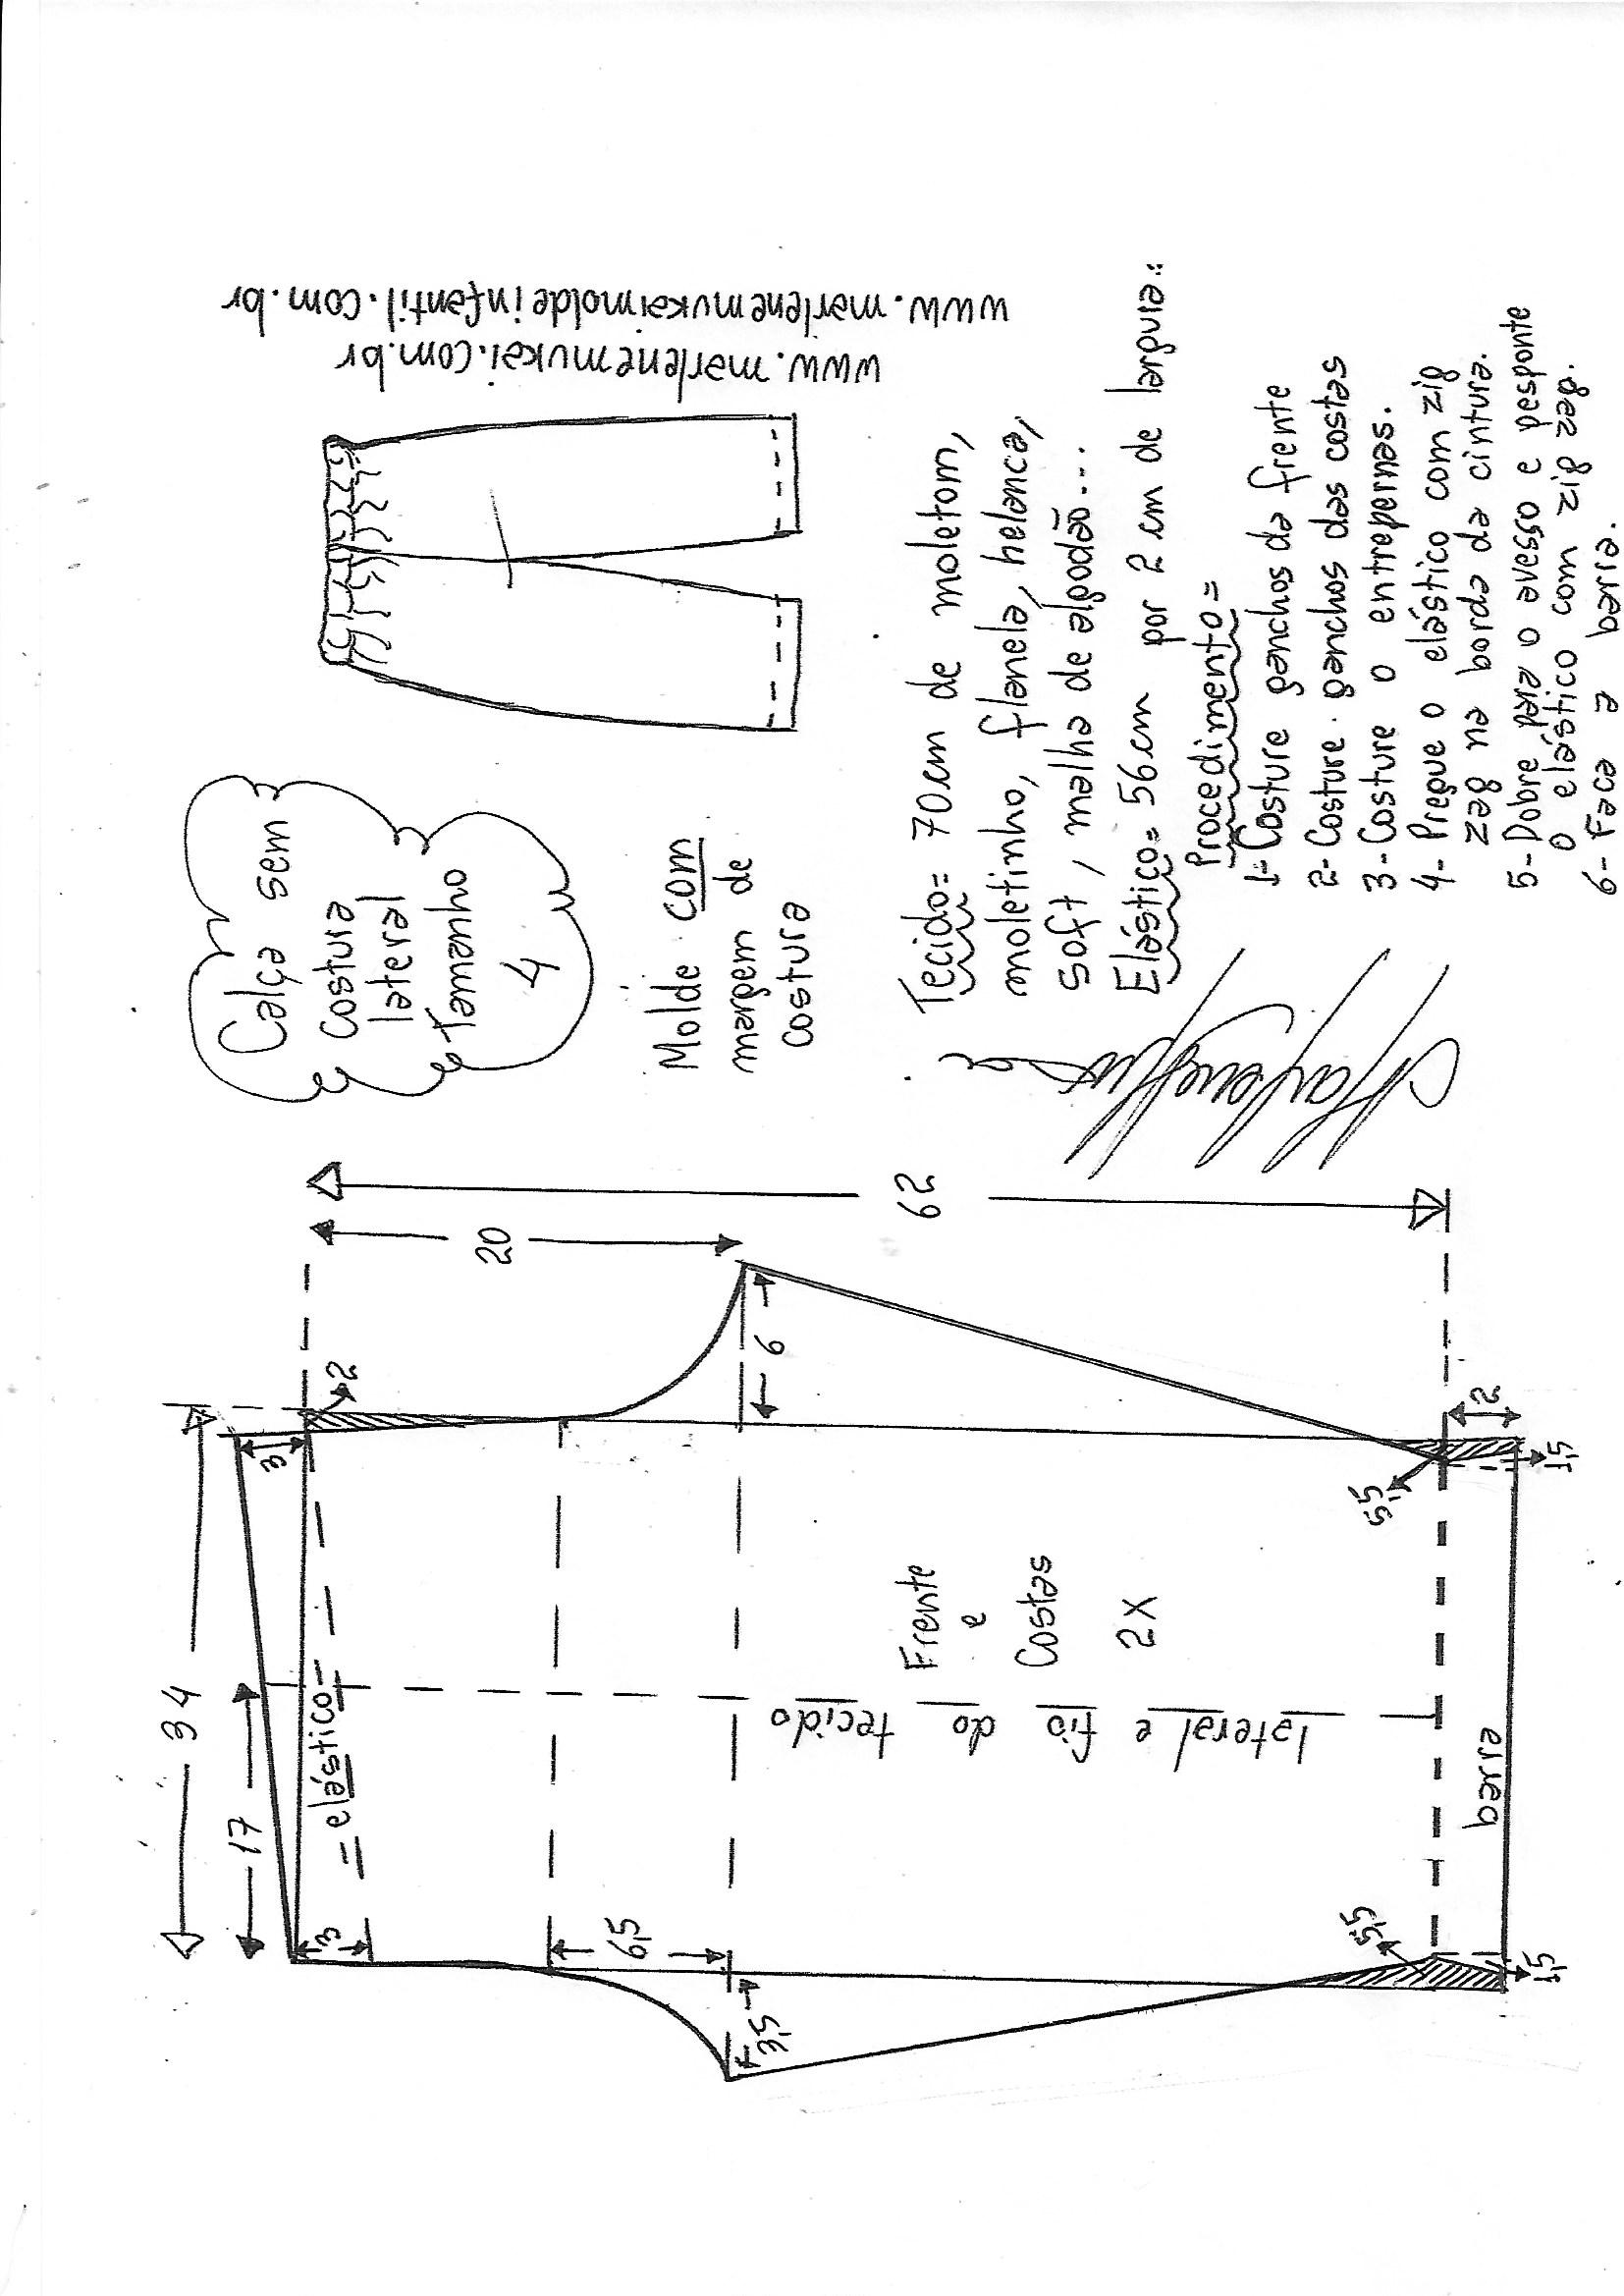 Calça sem
costura
lateral
Tamanho
4
Molde com
margem de
costura
www.marlenemukai.com.br
www.marlenemukaimoldeinfantil.com.br
Tecido= 70cm de moletom,
moletinho, flanela, helanca,
soft, malha de algodão...
Elástico= 56cm por 2 cm de largura=
Procedimento=
1- Costure ganchos da frente
2- Costure ganchos das costas
3- Costure o entrepernas.
4- Pregue o elástico com zig
zag na borda da cintura.
5- Dobre para o avesso e pesponte
o elástico com zig zag.
6- Faça a barra.
34
17
3
3
=elástico=
2
20
62
6,5
3,5
6
Frente
e
Costas
2X
lateral e fio do tecido
5,5
5,5
barra
2
1,5
1,5